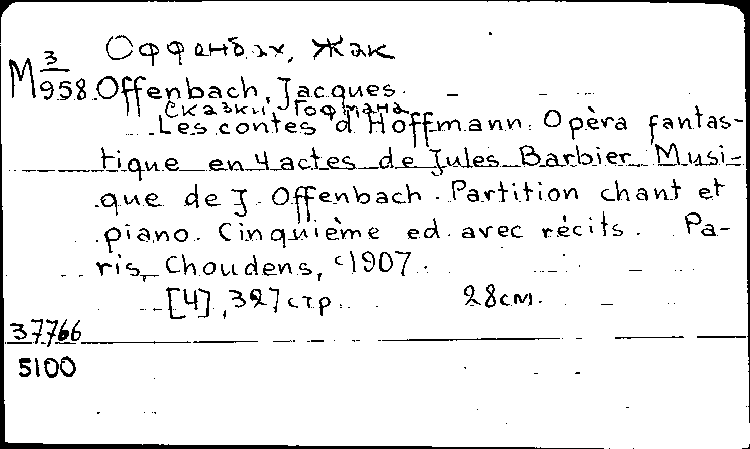 Оффенбах, Жак
M 3/958 Offenbach, Jacques.
Сказки Гофмана
Les contes d'Hoffmann. Opèra fantas-
tique en 4 actes de Jules Barbier Musi-
que de J. Offenbach. Partition chant et
piano. Cinquième ed. avec récits. Pa-
ris, Choudens, c1907.
[4], 327 стр. 28 см.
37766
5100